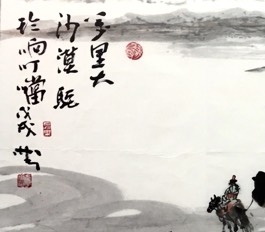 千里大
沙漠駝
玲响叮噹戊戌